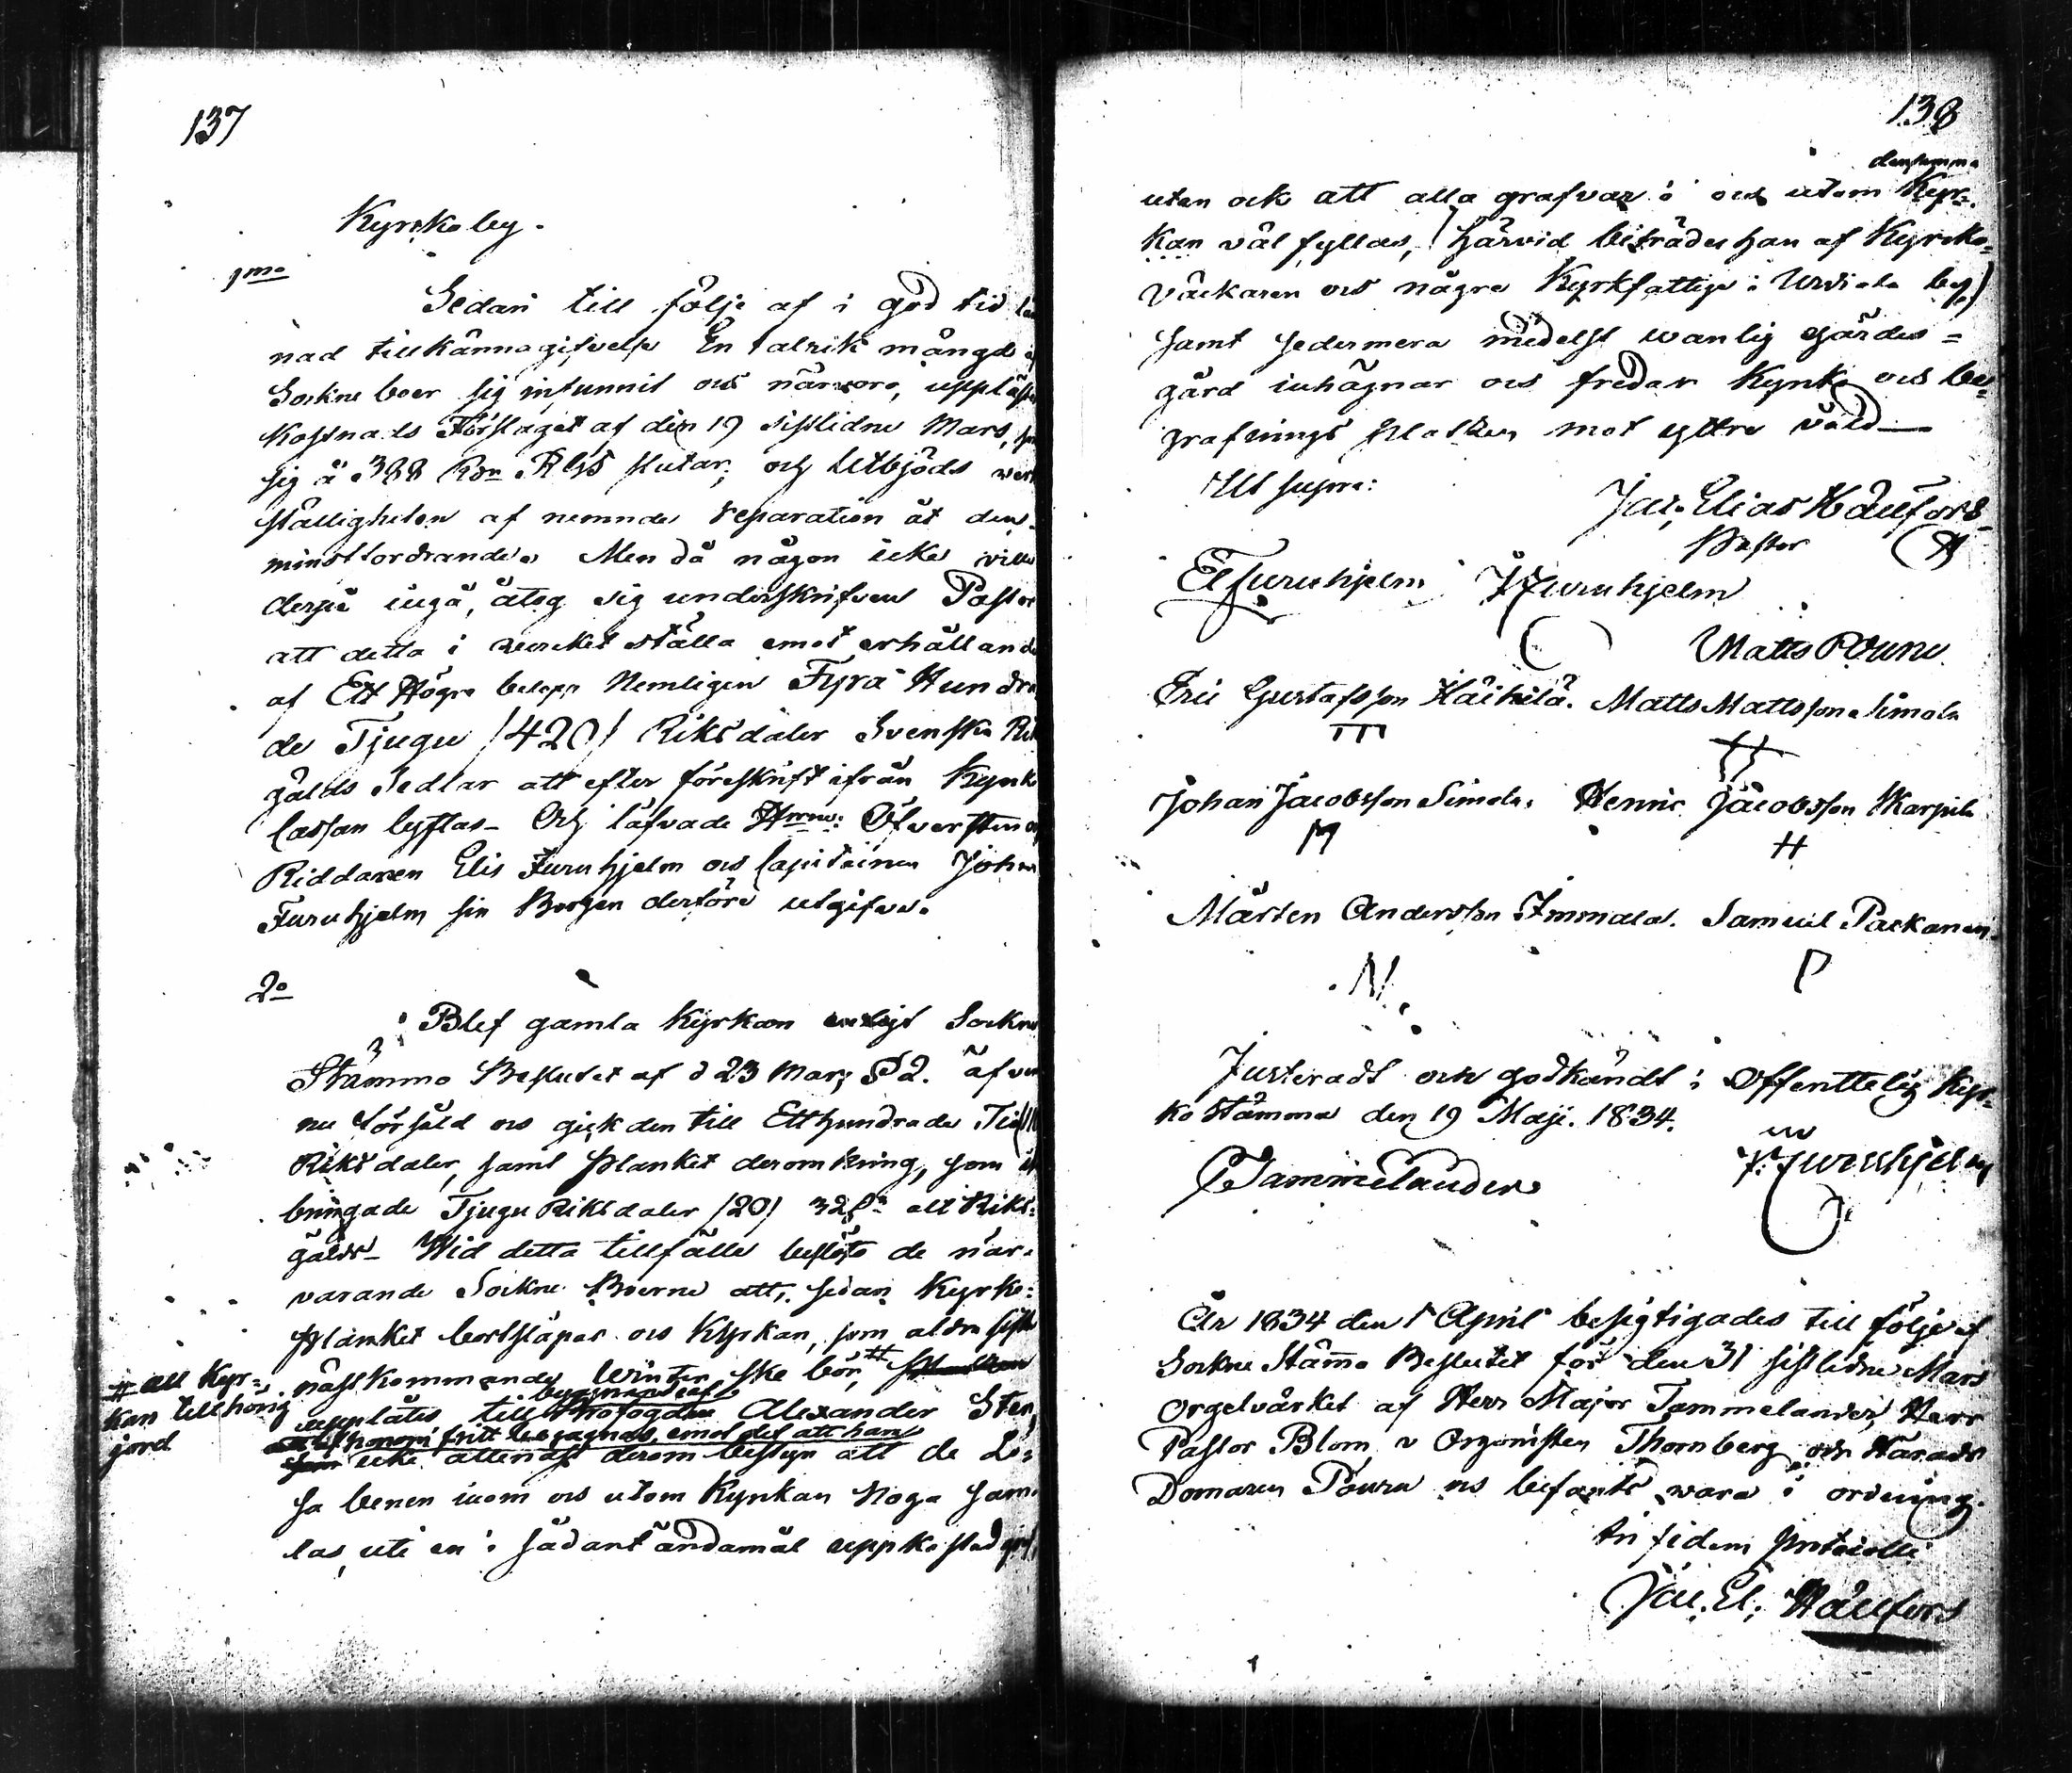 137
Kyrkoby.
1mo
Sedan till följe af i god tid
nad tillkännagifvelse En talrik mängd
Sockne boer sig infunnit ock närvoro, upplästes
Kostnads Förslaget af den 19 sistlidne Mars,
sig å 388 Rdr RGS slutar; och Utbjöds werk
ställigheten af nemnde reparation åt den
minstfordrande. Men då någon icke ville
derpå ingå, åtog sig underskrifven Pastor
att detta i wercket ställa emot erhållande
af Ett Högre belopp Nemligen Fyra Hundra
de Tjugu /420/ Riksdaler Svenska Rik
gälds Sedlar att efter föreskrift ifrån Kyrko
Cassan lyftas. Och låfvade Herrar Öfversten och
Riddaren Elis Furuhjelm ock Capitainen Johan
Furuhjelm sin Borgen derföre utgifva.
2o
Blef gamla Kyrkan enligt Sockne
Stämmo Beslutet af d 23 Mars § 2. äfven
nu försåld ock gick den till Etthundrade Tio
Riksdaler, samt Planket deromkring, som
bringade Tjugu Riksdaler /20/ 32 s. alt Riks=
gälds. Wid detta tillfälle beslöto de när=
varande Sockne Boerne att, sedan Kyrko=
planket bortsläpas ock Kyrkan, som aldra sist
nästkommande Winter ske bör, #
# all Kyr=
kan tillhörig
jord
upplåtes till begagnande af Alexander Sten
fritt begagnas, emot det att han
icke allenast derom besörjer att de Lö=
sa benen inom ock utom Kyrkan Noga sam=
las, uti en i sådant ändamål uppkastad graf,
138
densamma
utan ock att alla grafvar i ock utom Kyr=
kan väl fyllas, (härvid biträdes han af Kyrko=
väckaren ock någre Kyrkfattige i Urdiala by)
samt sedermera medelst wanlig gärdes=
gård inhägnar ock fredar Kyrko ock be=
grafnings platsen mot yttre våld.
Ut supra:
Jac. Elias Hällfors
Pastor
E Furuhjelm J Furuhjelm
Matts Pouru
Eric Gustafsson Kaihila. Matts Mattsson Simola
Johan Jacobsson Simola. Henric Jacobsson Skarpila
Mårten Andersson Immala. Samuel Packanen.
Justeradt ock godkändt i Offenttelig Kyr=
ko Stämma den 19 Maji. 1834.
Tammelander
J. Furuhjelm
År 1834 den 1 April besigtigades till följe af
Sockne Stämo Beslutet för den 31 sistlidne Mars
Orgelvärket af Herr Major Tammelander, Herr
Pastor Blom v Organisten Thornberg och Härads
Domaren Pouru ock befants wara i ordning.
In fidem protocolli
Jac. El. Hällfors